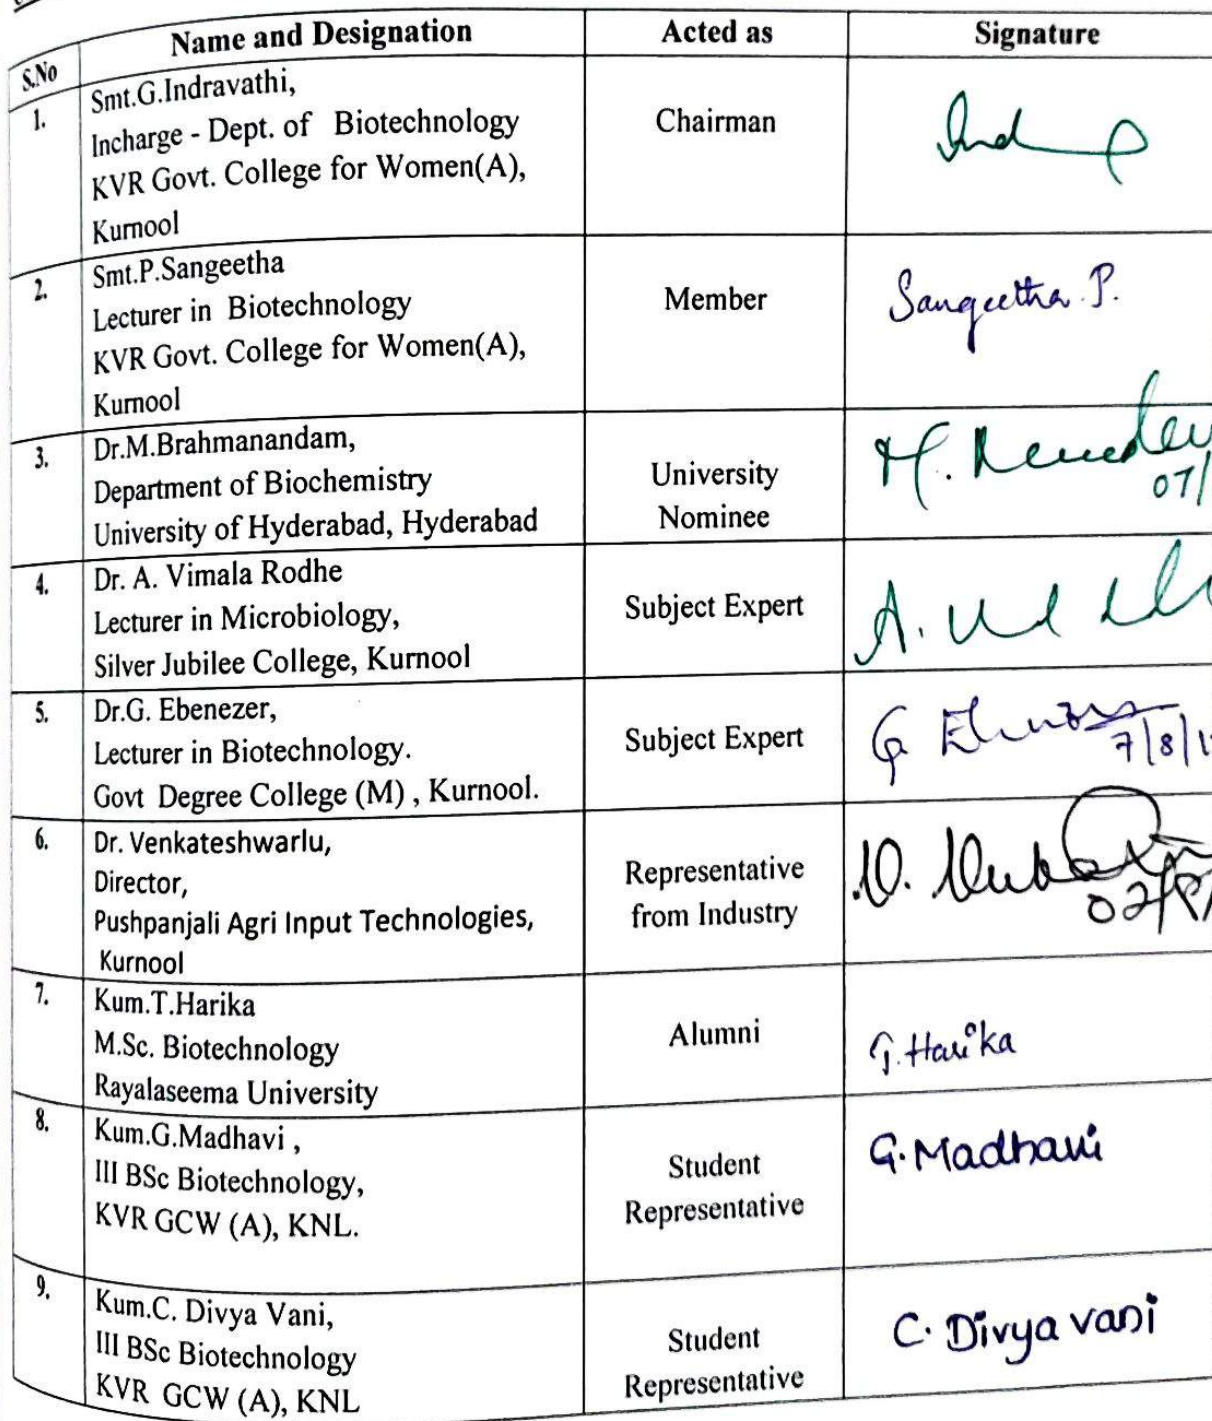 S.No Name and Designation Acted as Signature
1. Smt.G.Indravathi,
Incharge - Dept. of Biotechnology
KVR Govt. College for Women(A),
Kurnool
Chairman
Ind
2. Smt.P.Sangeetha
Lecturer in Biotechnology
KVR Govt. College for Women(A),
Kurnool
Member
Sangeetha P.
3. Dr.M.Brahmanandam,
Department of Biochemistry
University of Hyderabad, Hyderabad
University
Nominee
M.
07/
4. Dr. A. Vimala Rodhe
Lecturer in Microbiology,
Silver Jubilee College, Kurnool
Subject Expert
A.
5. Dr.G. Ebenezer,
Lecturer in Biotechnology.
Govt Degree College (M) , Kurnool.
Subject Expert
G
7/8/1
6. Dr. Venkateshwarlu,
Director,
Pushpanjali Agri Input Technologies,
Kurnool
Representative
from Industry
7. Kum.T.Harika
M.Sc. Biotechnology
Rayalaseema University
Alumni
T.Harika
8. Kum.G.Madhavi ,
III BSc Biotechnology,
KVR GCW (A), KNL.
Student
Representative
G.Madhavi
9. Kum.C. Divya Vani,
III BSc Biotechnology
KVR GCW (A), KNL
Student
Representative
C. Divya vani